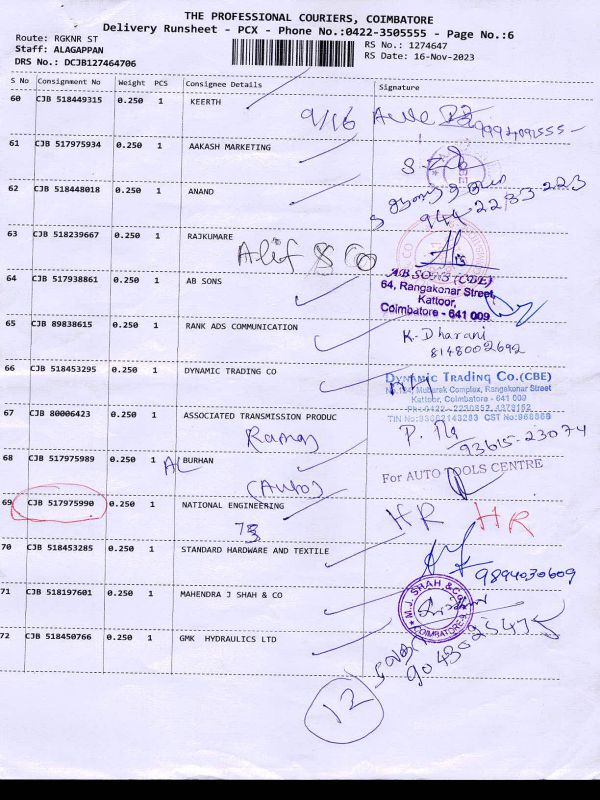 THE PROFESSIONAL COURIERS, COIMBATORE
Delivery Runsheet - PCX - Phone No.:0422-3505555 - Page No.:6
Route: RGKNR ST
RS No.: 1274647
Staff: ALAGAPPAN
RS Date: 16-Nov-2023
DRS No.: DCJB127464706
S No Consignment No Weight PCS Consignee Details Signature
60 CJB 518449315 0.250 1 KEERTH
9/16
9994091555
61 CJB 517975934 0.250 1 AAKASH MARKETING
62 CJB 518448018 0.250 1 ANAND
944 22 33 223
63 CJB 518239667 0.250 1 RAJKUMARE
Alif & Co
64 CJB 517938861 0.250 1 AB SONS
AB SONS (CBE)
64, Rangakonar Street,
Kattoor,
Coimbatore - 641 009
65 CJB 89838615 0.250 1 RANK ADS COMMUNICATION
K. Dharani
8148002692
66 CJB 518453295 0.250 1 DYNAMIC TRADING CO
DYNAMIC TRADING CO.(CBE)
Mubarak Complex, Rangakonar Street
Kattoor, Coimbatore - 641 009
67 CJB 80006423 0.250 1 ASSOCIATED TRANSMISSION PRODUC
Ramas
93615-23074
68 CJB 517975989 0.250 1 AL BURHAN
(Auto)
For AUTO TOOLS CENTRE
69 CJB 517975990 0.250 1 NATIONAL ENGINEERING
HR HR
70 CJB 518453285 0.250 1 STANDARD HARDWARE AND TEXTILE
9894030609
71 CJB 518197601 0.250 1 MAHENDRA J SHAH & CO
M.J. SHAH & CO
COIMBATORE
72 CJB 518450766 0.250 1 GMK HYDRAULICS LTD
12